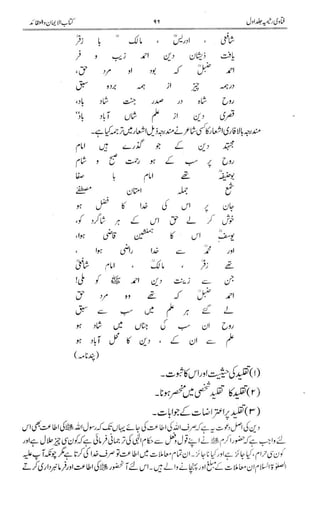 فتاویٰ رحیمیہ جلد اول ۹۶ کتاب الایمان والعقائد
شافعیؒ ، ادریسؒ ، مالکؒ با زفرؒ
یافت دین احمد زیب و فر
احمد حنبلؒ کہ بود او مرد حق،
در ہمہ چیز از ہمہ بردہ سبق
روح شاں در صدر جنت شاد باد،
قصر دین از علم شاں آباد باد
مندرجہ بالا فارسی اشعار کا کسی شاعر نے مندرجہ ذیل اشعار میں ترجمہ کیا ہے۔
مجتہد دین کے جو گذرے ہیں امام
روح پر سب کے ہو رحمت صبح و شام
بوحنیفہؒ تھے امام با صفا
شمع جملہ امتان مصطفےٰ
جان پر اس کی خدا کا فضل ہو
خوش کرے حق اس کے ہر شاگرد کو،
یوسفؒ اس کا ہمنشین قاضی ہوا،
اور محمدؒ سے خدا راضی ہوا ،
تھے زفرؒ ، مالکؒ ، امام شافعیؒ
جن سے زینت دین احمد ﷺ کو ملی!
احمد حنبلؒ کہ تھے وہ مرد حق
لے گئے ہر علم میں سب سے سبق
روح ان سب کی جناں میں شاد ہو
علم سے ان کے ، دین کا محل آباد ہو
(پندنامہ)
(۱) تقلید کی حیثیت اور اس کا ثبوت۔
(۲) تقلید کا تقلید شخصی میں منحصر ہونا۔
(۳) تقلید پر اعتراضات کے جوابات۔
دین کی اصل دعوت یہ ہے کہ صرف اللہ کی اطاعت کی جائے یہاں تک کہ رسول اللہ ﷺ کی اطاعت بھی اس
لئے واجب ہے کہ حضور اکرم ﷺ نے اپنے قول و فعل سے احکام الٰہی کی ترجمانی فرمائی ہے کہ کون سی چیز حلال ہے اور
کون سی حرام، کیا جائز ہے اور کیا ناجائز۔ ان تمام معاملات میں اطاعت تو صرف خدا کی کرنا ہے مگر چونکہ آپ علیہ
الصلوٰۃ السلام ان معاملات کے مبلغ اور پہنچانے والے ہیں۔ اس لئے آنحضور ﷺ کی اطاعت اور فرمانبرداری کرتے